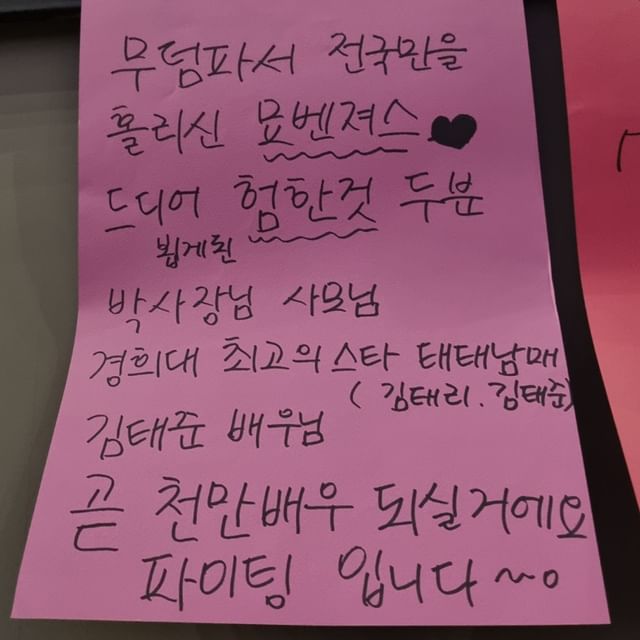 무덤파서 전국민을
홀리신 묘벤져스♥
드디어 험한것 두분
뵙게된
박사장님 사모님
경희대 최고의스타 태태남매
( 김태리. 김태준)
김태준 배우님
곧 천만배우 되실거에요
파이팅 입니다~~o